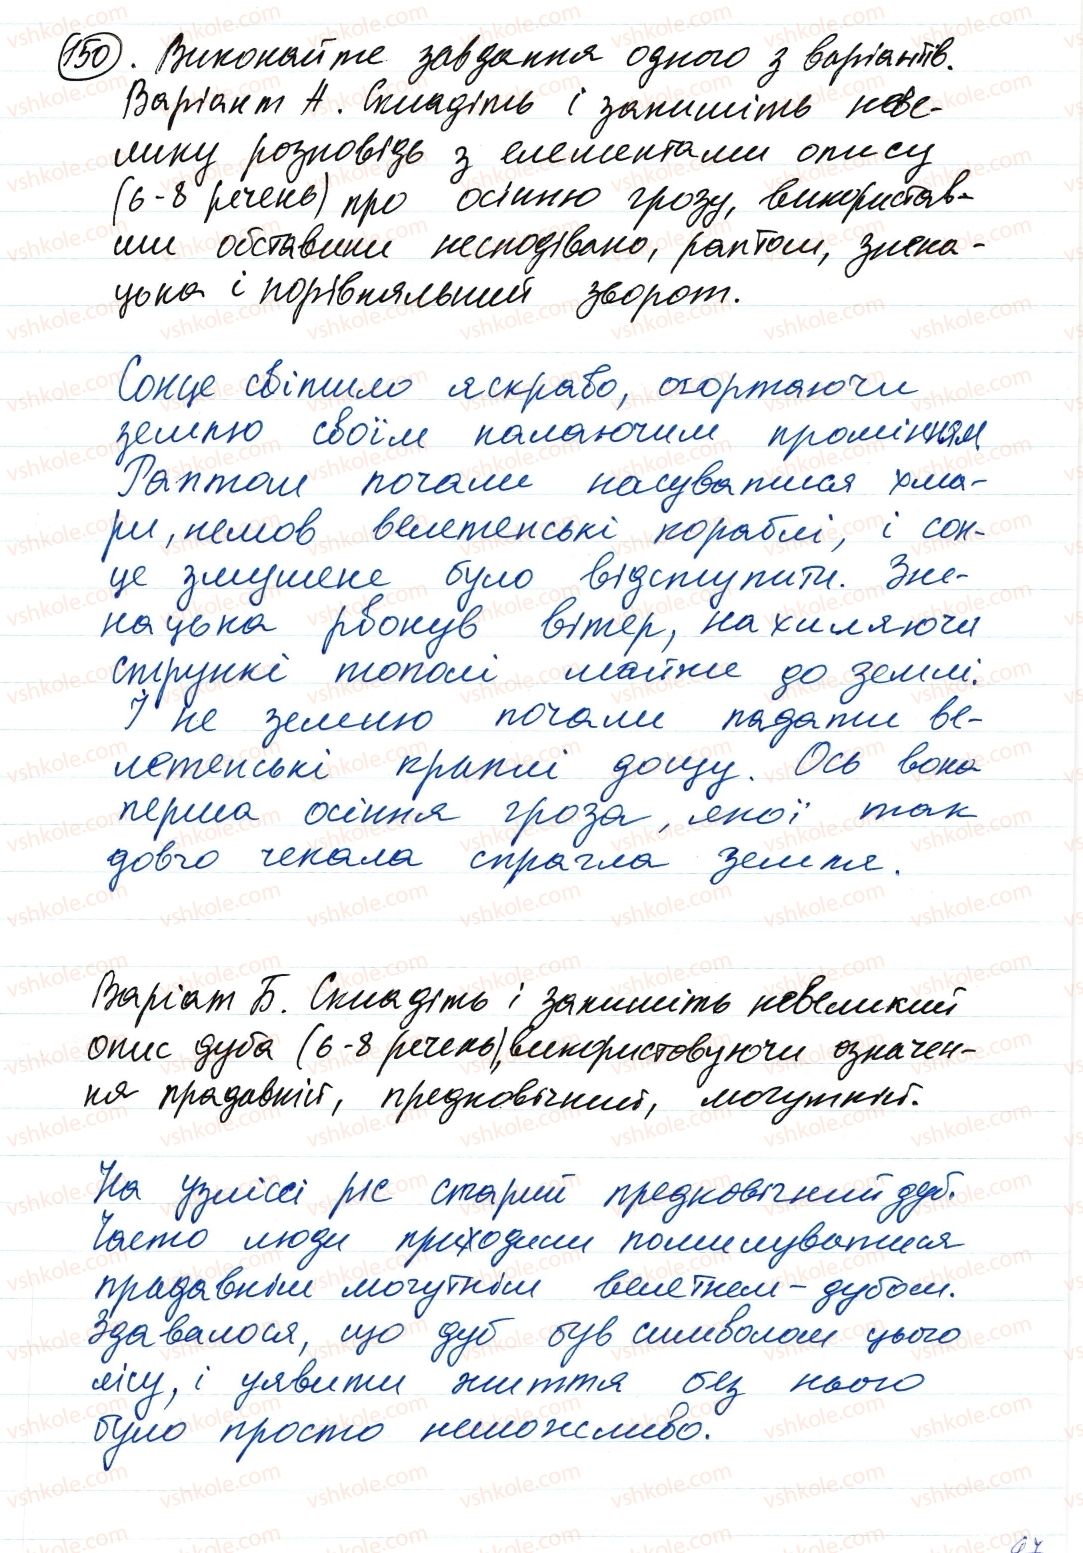 150. Виконайте завдання одного з варіантів.
Варіант А. Складіть і запишіть неве-
лику розповідь з елементами опису
(6-8 речень) про осінню грозу, використав-
ши обставини несподівано, раптом, знена-
цька і порівняльний зворот.
Сонце світило яскраво, огортаючи
землю своїм палаючим промінням
Раптом почали насуватися хма-
ри, немов велетенські кораблі, і сон-
це змушене було відступити. Зне-
нацька рвонув вітер, нахиляючи
стрункі тополі майже до землі.
І не землю почали падати ве-
летенські краплі дощу. Ось вона
перша осіння гроза, якої так
довго чекала спрагла земля.
Варіат Б. Складіть і запишіть невеликий
опис дуба (6-8 речень), використовуючи означен-
ня прадавній, предковічний, могутній.
На узліссі ріс старий предковічний дуб.
Часто люди приходили помилуватися
прадавнім могутнім велетнем-дубом.
Здавалося, що дуб був символом цього
лісу, і уявити життя без нього
було просто неможливо.